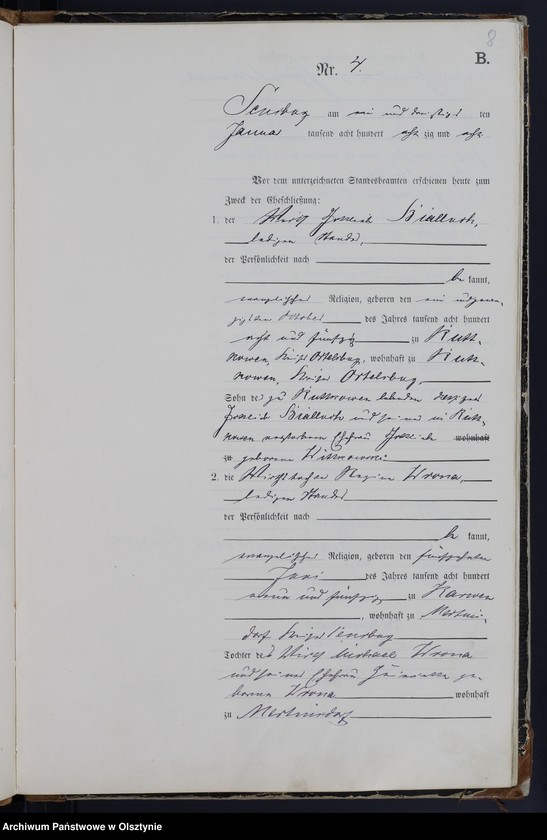 8
B.
Nr. 4.
Sensburg am ein und dreißigsten
Januar tausend acht hundert achtzig und acht
Vor dem unterzeichneten Standesbeamten erschienen heute zum
Zweck der Eheschließung:
1. der Wirth Bialluch,
ledigen Standes,
der Persönlichkeit nach
be kannt,
evangelischer Religion, geboren den ein und zwan-
zigsten October des Jahres tausend acht hundert
acht und fünfzig zu Rutt-
kowen, Kreises Ortelsburg, wohnhaft zu Rutt-
kowen, Kreises Ortelsburg,
Sohn des zu Ruttkowen lebenden
Bialluch und seiner in Rutt-
kowen verstorbenen Ehefrau wohnhaft
zu geborene
2. die Wirthstochter Regine Krona,
ledigen Standes
der Persönlichkeit nach
be kannt,
evangelischer Religion, geboren den fünfzehnten
Juni des Jahres tausend acht hundert
neun und fünfzig zu Karwen
, wohnhaft zu Mertins-
dorf Kreises Sensburg
Tochter des Wirth Michael Krona
und seiner Ehefrau ge-
borene Krona wohnhaft
zu Mertinsdorf
Archiwum Państwowe w Olsztynie